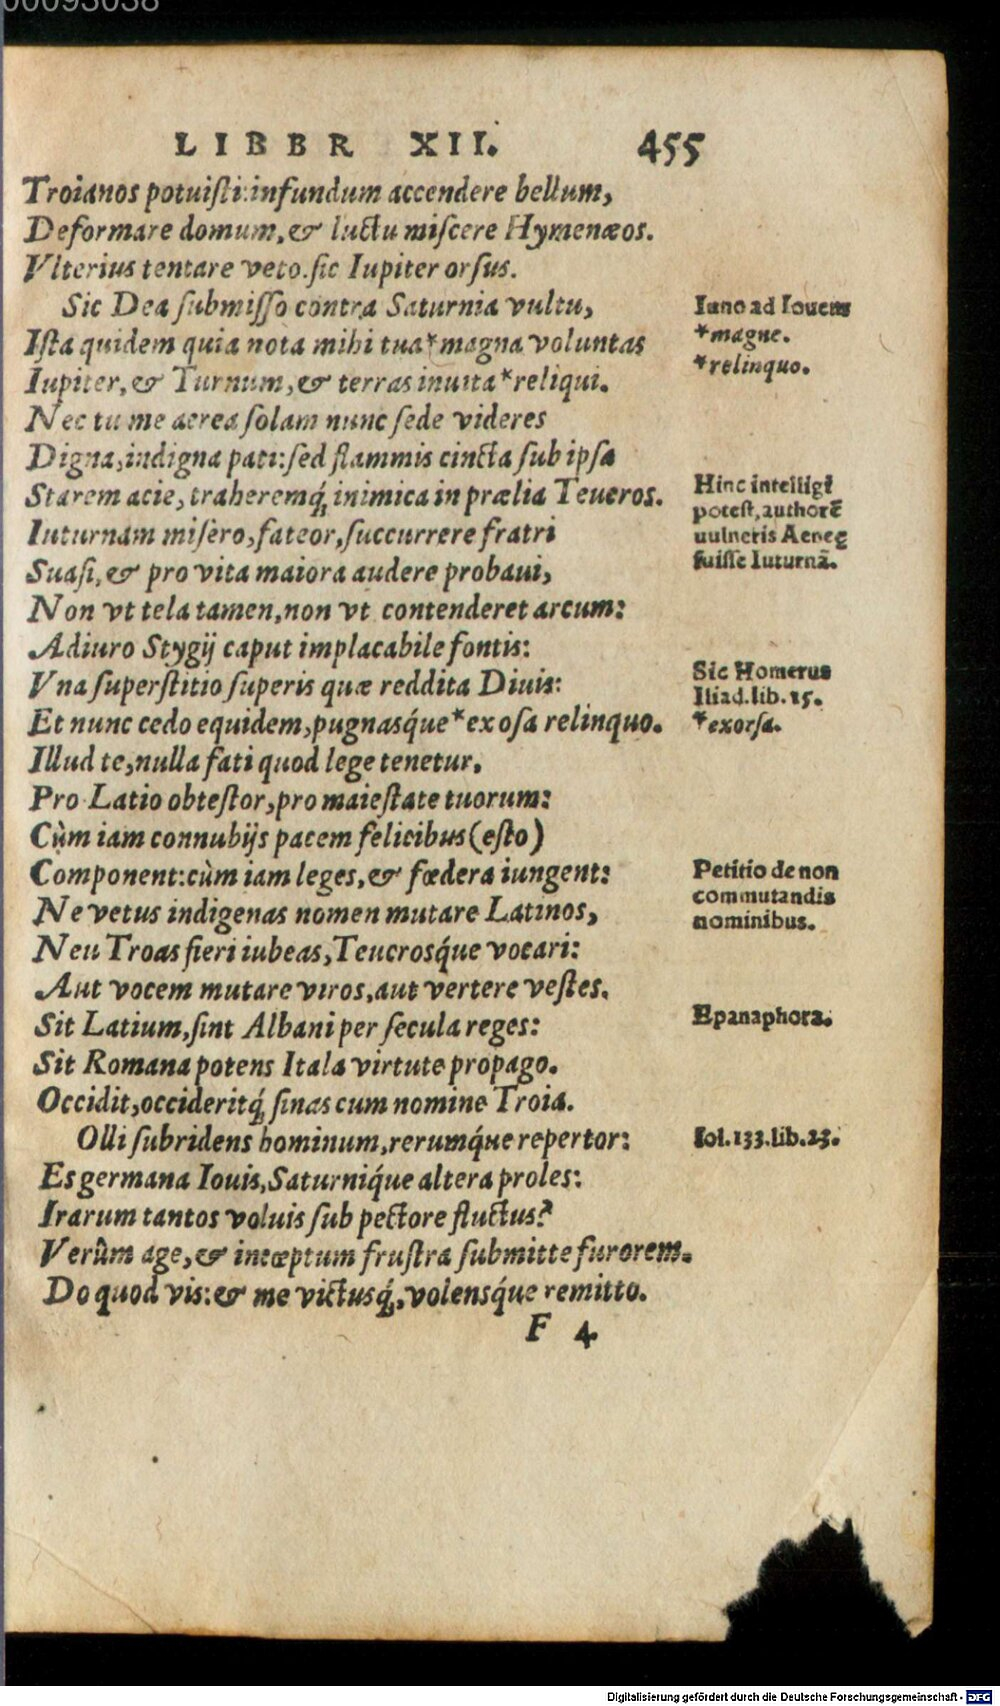 00093038
LIBBR XII. 455
Troianos potuiſti: infundum accendere bellum,
Deformare domum, & luctu miſcere Hymenæos.
Vlterius tentare veto. ſic Iupiter orſus.
Sic Dea ſubmiſſo contra Saturnia vultu,
Iuno ad Iouem
Iſta quidem quia nota mihi tua* magna voluntas
*magne.
Iupiter, & Turnum, & terras inuita* reliqui.
*relinquo.
Nec tu me aerea ſolam nunc ſede videres
Digna, indigna pati: ſed flammis cincta ſub ipſa
Starem acie, traheremq́; inimica in prælia Teucros.
Hinc intelligi
potest, authorẽ
uulneris Aeneę
fuiſſe Iuturnã.
Iuturnam miſero, fateor, ſuccurrere fratri
Suaſi, & pro vita maiora audere probaui,
Non vt tela tamen, non vt contenderet arcum:
Adiuro Stygij caput implacabile fontis:
Vna ſuperſtitio ſuperis quæ reddita Diuis:
Sic Homerus
Iliad. lib. 15.
Et nunc cedo equidem, pugnasq́ue* exoſa relinquo.
*exorſa.
Illud te, nulla fati quod lege tenetur,
Pro Latio obteſtor, pro maieſtate tuorum:
Cùm iam connubijs pacem felicibus (eſto)
Component: cùm iam leges, & fœdera iungent:
Petitio de non
commutandis
nominibus.
Ne vetus indigenas nomen mutare Latinos,
Neu Troas fieri iubeas, Teucrosq́ue vocari:
Aut vocem mutare viros, aut vertere veſtes.
Sit Latium, ſint Albani per ſecula reges:
Epanaphora.
Sit Romana potens Itala virtute propago.
Occidit, occideritq́; ſinas cum nomine Troia.
Olli ſubridens hominum, rerumq́ue repertor:
fol. 133. lib. 23.
Es germana Iouis, Saturniq́ue altera proles:
Irarum tantos voluis ſub pectore fluctus?
Verûm age, & incœptum fruſtra ſubmitte furorem.
Do quod vis: & me victusq́;, volensq́ue remitto.
F 4
Digitalisierung gefördert durch die Deutsche Forschungsgemeinschaft - DFG